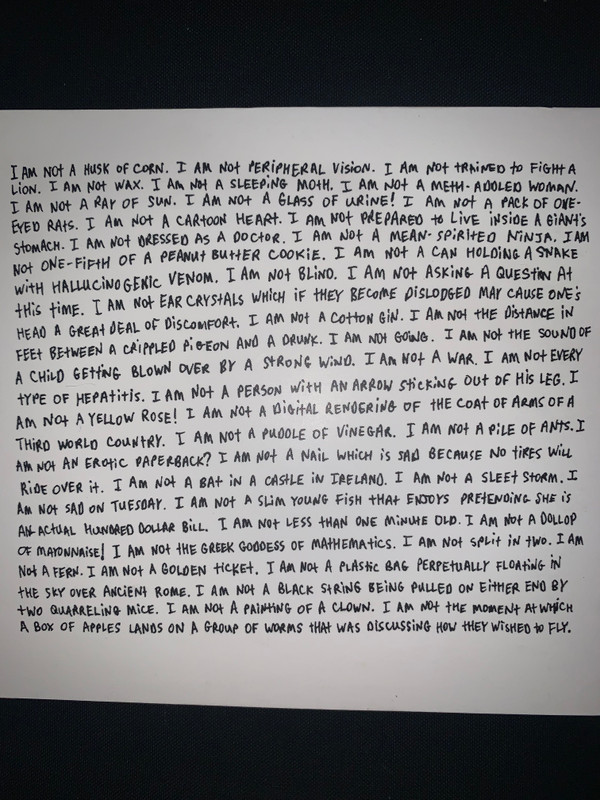 I AM NOT A HUSK OF CORN. I AM NOT PERIPHERAL VISION. I AM NOT TRAINED TO FIGHT A
LION. I AM NOT WAX. I AM NOT A SLEEPING MOTH. I AM NOT A METH-ADDLED WOMAN.
I AM NOT A RAY OF SUN. I AM NOT A GLASS OF URINE! I AM NOT A PACK OF ONE-
EYED RATS. I AM NOT A CARTOON HEART. I AM NOT PREPARED TO LIVE INSIDE A GIANT'S
STOMACH. I AM NOT DRESSED AS A DOCTOR. I AM NOT A MEAN-SPIRITED NINJA. I AM
NOT ONE-FIFTH OF A PEANUT BUTTER COOKIE. I AM NOT A CAN HOLDING A SNAKE
WITH HALLUCINOGENIC VENOM. I AM NOT BLIND. I AM NOT ASKING A QUESTION AT
THIS TIME. I AM NOT EAR CRYSTALS WHICH IF THEY BECOME DISLODGED MAY CAUSE ONE'S
HEAD A GREAT DEAL OF DISCOMFORT. I AM NOT A COTTON GIN. I AM NOT THE DISTANCE IN
FEET BETWEEN A CRIPPLED PIGEON AND A DRUNK. I AM NOT GOING. I AM NOT THE SOUND OF
A CHILD GETTING BLOWN OVER BY A STRONG WIND. I AM NOT A WAR. I AM NOT EVERY
TYPE OF HEPATITIS. I AM NOT A PERSON WITH AN ARROW STICKING OUT OF HIS LEG. I
AM NOT A YELLOW ROSE! I AM NOT A DIGITAL RENDERING OF THE COAT OF ARMS OF A
THIRD WORLD COUNTRY. I AM NOT A PUDDLE OF VINEGAR. I AM NOT A PILE OF ANTS. I
AM NOT AN EROTIC PAPERBACK? I AM NOT A NAIL WHICH IS SAD BECAUSE NO TIRES WILL
RIDE OVER IT. I AM NOT A BAT IN A CASTLE IN IRELAND. I AM NOT A SLEET STORM. I
AM NOT SAD ON TUESDAY. I AM NOT A SLIM YOUNG FISH THAT ENJOYS PRETENDING SHE IS
AN ACTUAL HUNDRED DOLLAR BILL. I AM NOT LESS THAN ONE MINUTE OLD. I AM NOT A DOLLOP
OF MAYONNAISE! I AM NOT THE GREEK GODDESS OF MATHEMATICS. I AM NOT SPLIT IN TWO. I AM
NOT A FERN. I AM NOT A GOLDEN TICKET. I AM NOT A PLASTIC BAG PERPETUALLY FLOATING IN
THE SKY OVER ANCIENT ROME. I AM NOT A BLACK STRING BEING PULLED ON EITHER END BY
TWO QUARRELING MICE. I AM NOT A PAINTING OF A CLOWN. I AM NOT THE MOMENT AT WHICH
A BOX OF APPLES LANDS ON A GROUP OF WORMS THAT WAS DISCUSSING HOW THEY WISHED TO FLY.